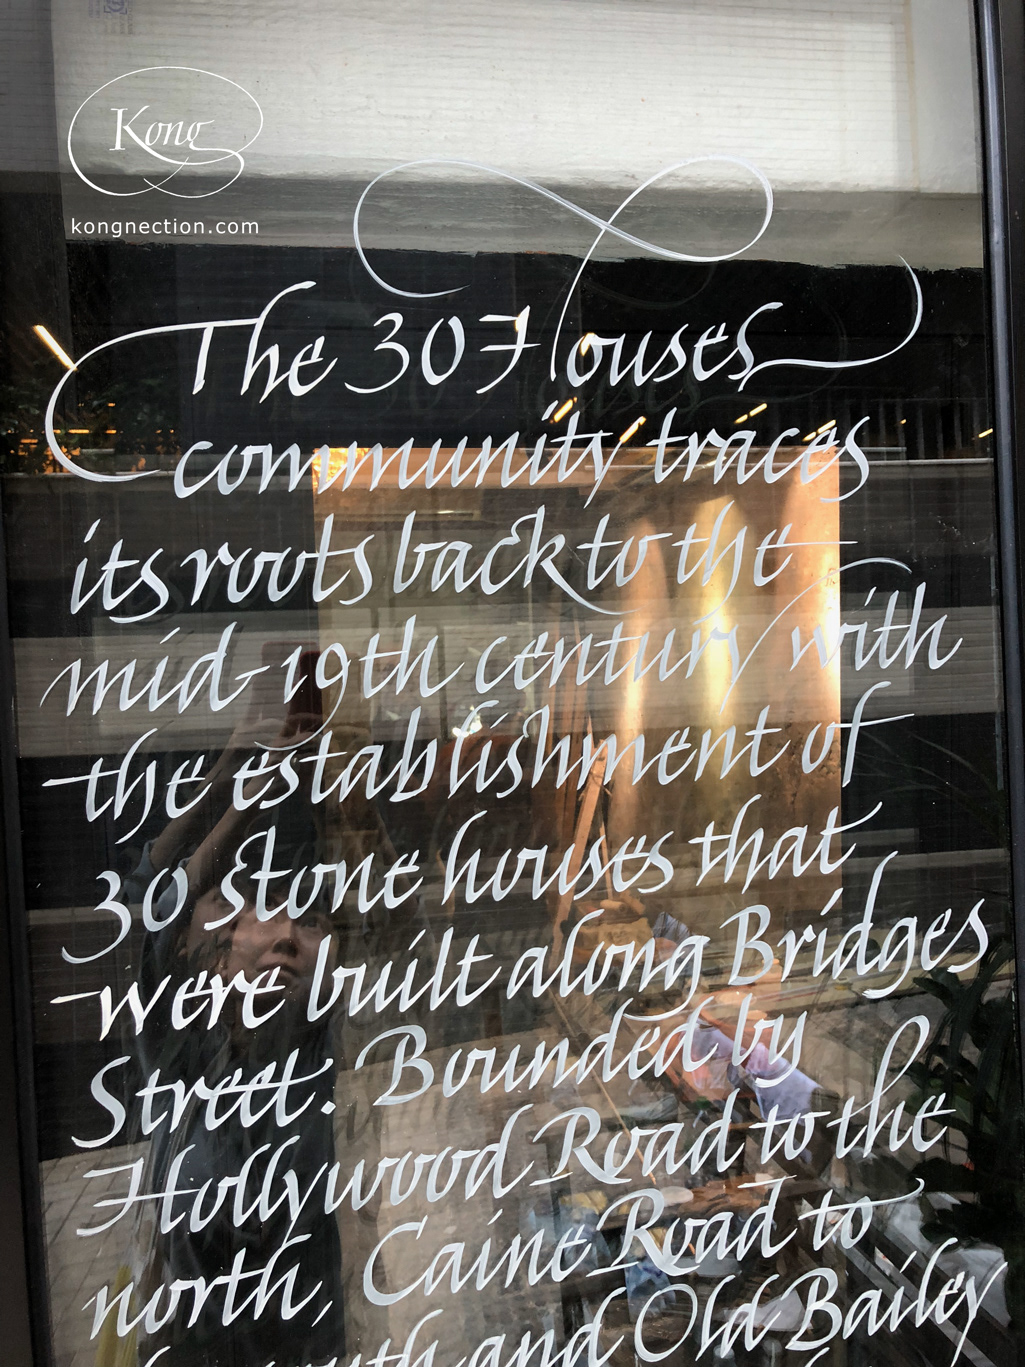 Kong
kongnection.com
The 30 Houses
community traces
its roots back to the
mid-19th century with
the establishment of
30 Stone houses that
were built along Bridges
Street. Bounded by
Hollywood Road to the
north, Caine Road to
south and Old Bailey